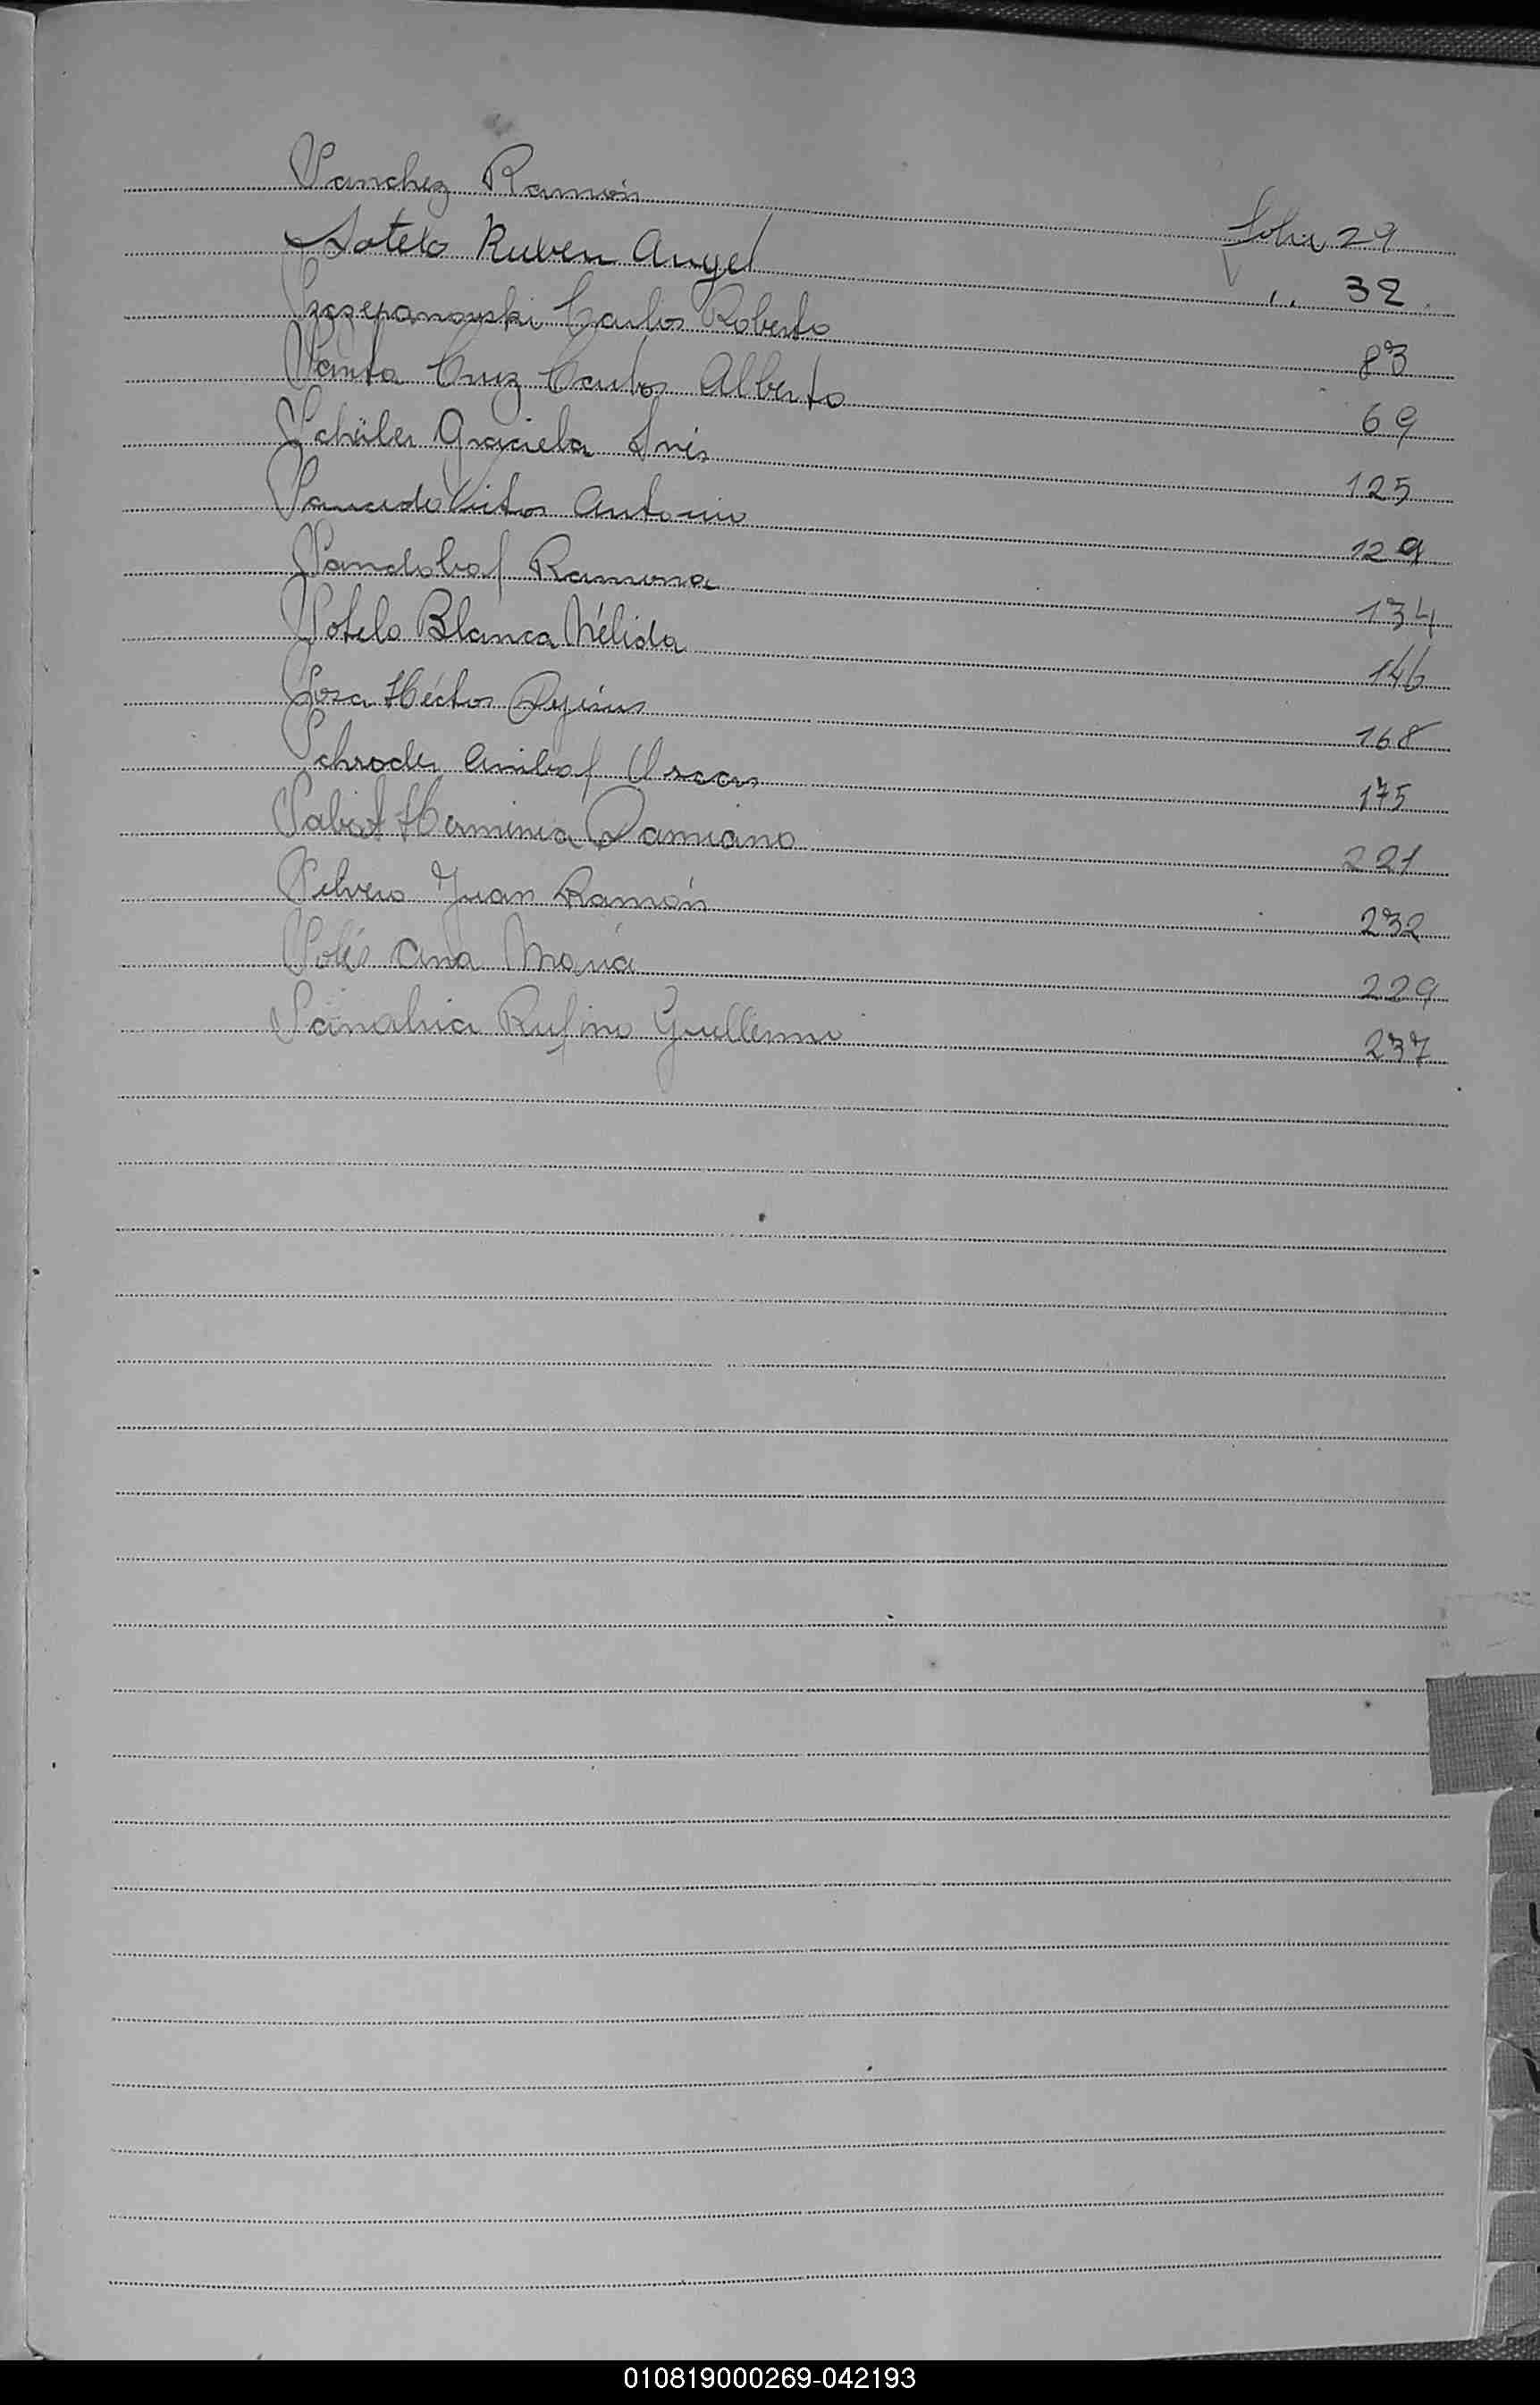 Sanchez Ramón folio 29
Sotelo Ruben Angel " 32
Szczepanowski Carlos Roberto 83
Santa Cruz Carlos Alberto 69
Schüler Graciela Inés 125
Saucedo Victor Antonio 129
Sandobal Ramona 134
Sotelo Blanca Nélida 146
Sosa Héctor 168
Schroder Anibal Oscar 175
Sabat Herminia Damiano 221
Silvero Juan Ramón 232
Solis Ana Maria 229
Sanabria Rufino Guillermo 237
010819000269-042193